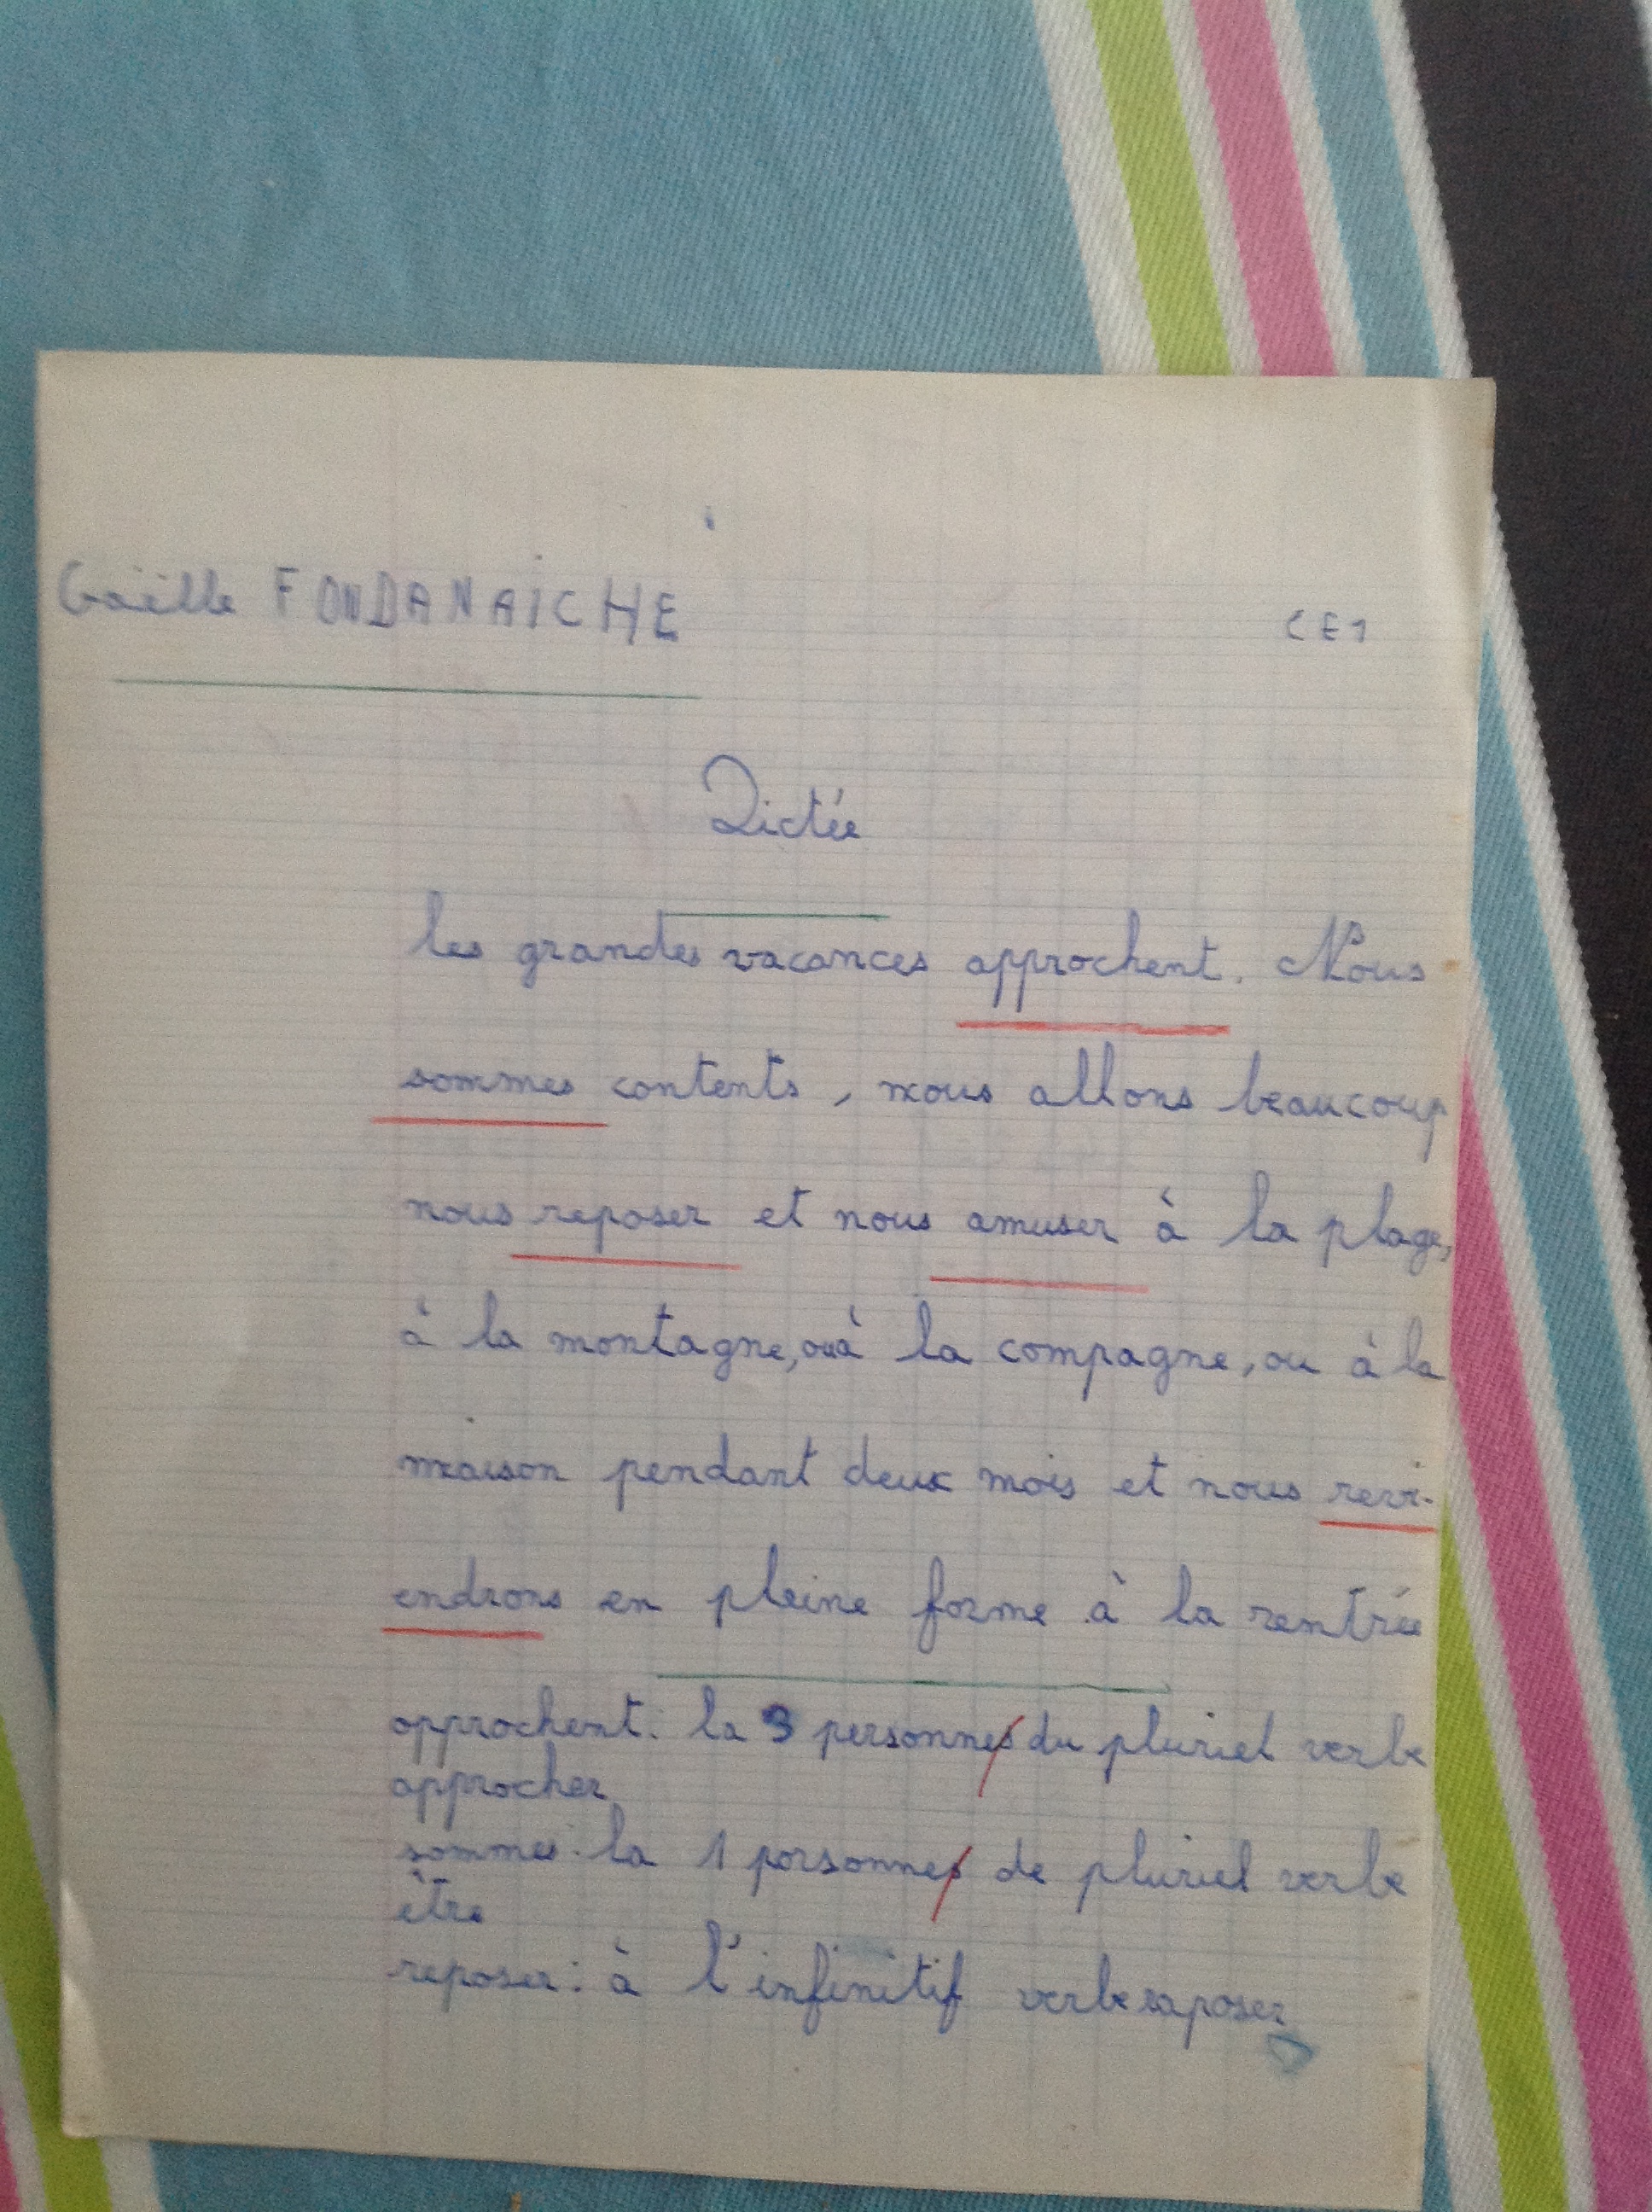 Gaëlle FONDANAICHE
CE1
Dictée
les grandes vacances approchent. Nous
sommes contents, nous allons beaucoup
nous reposer et nous amuser à la plage,
à la montagne, ou à la compagne, ou à la
maison pendant deux mois et nous revi-
endrons en pleine forme à la rentrée
approchent: la 3 personnes du pluriel verbe
approcher
sommes: la 1 personnes de pluriel verbe
être
reposer: à l'infinitif verbe raposer